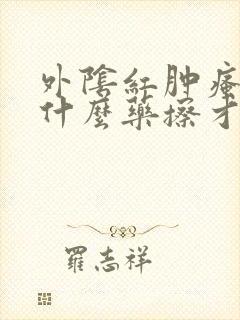 外陰紅肿瘙
什麼藥擦才
羅志祥